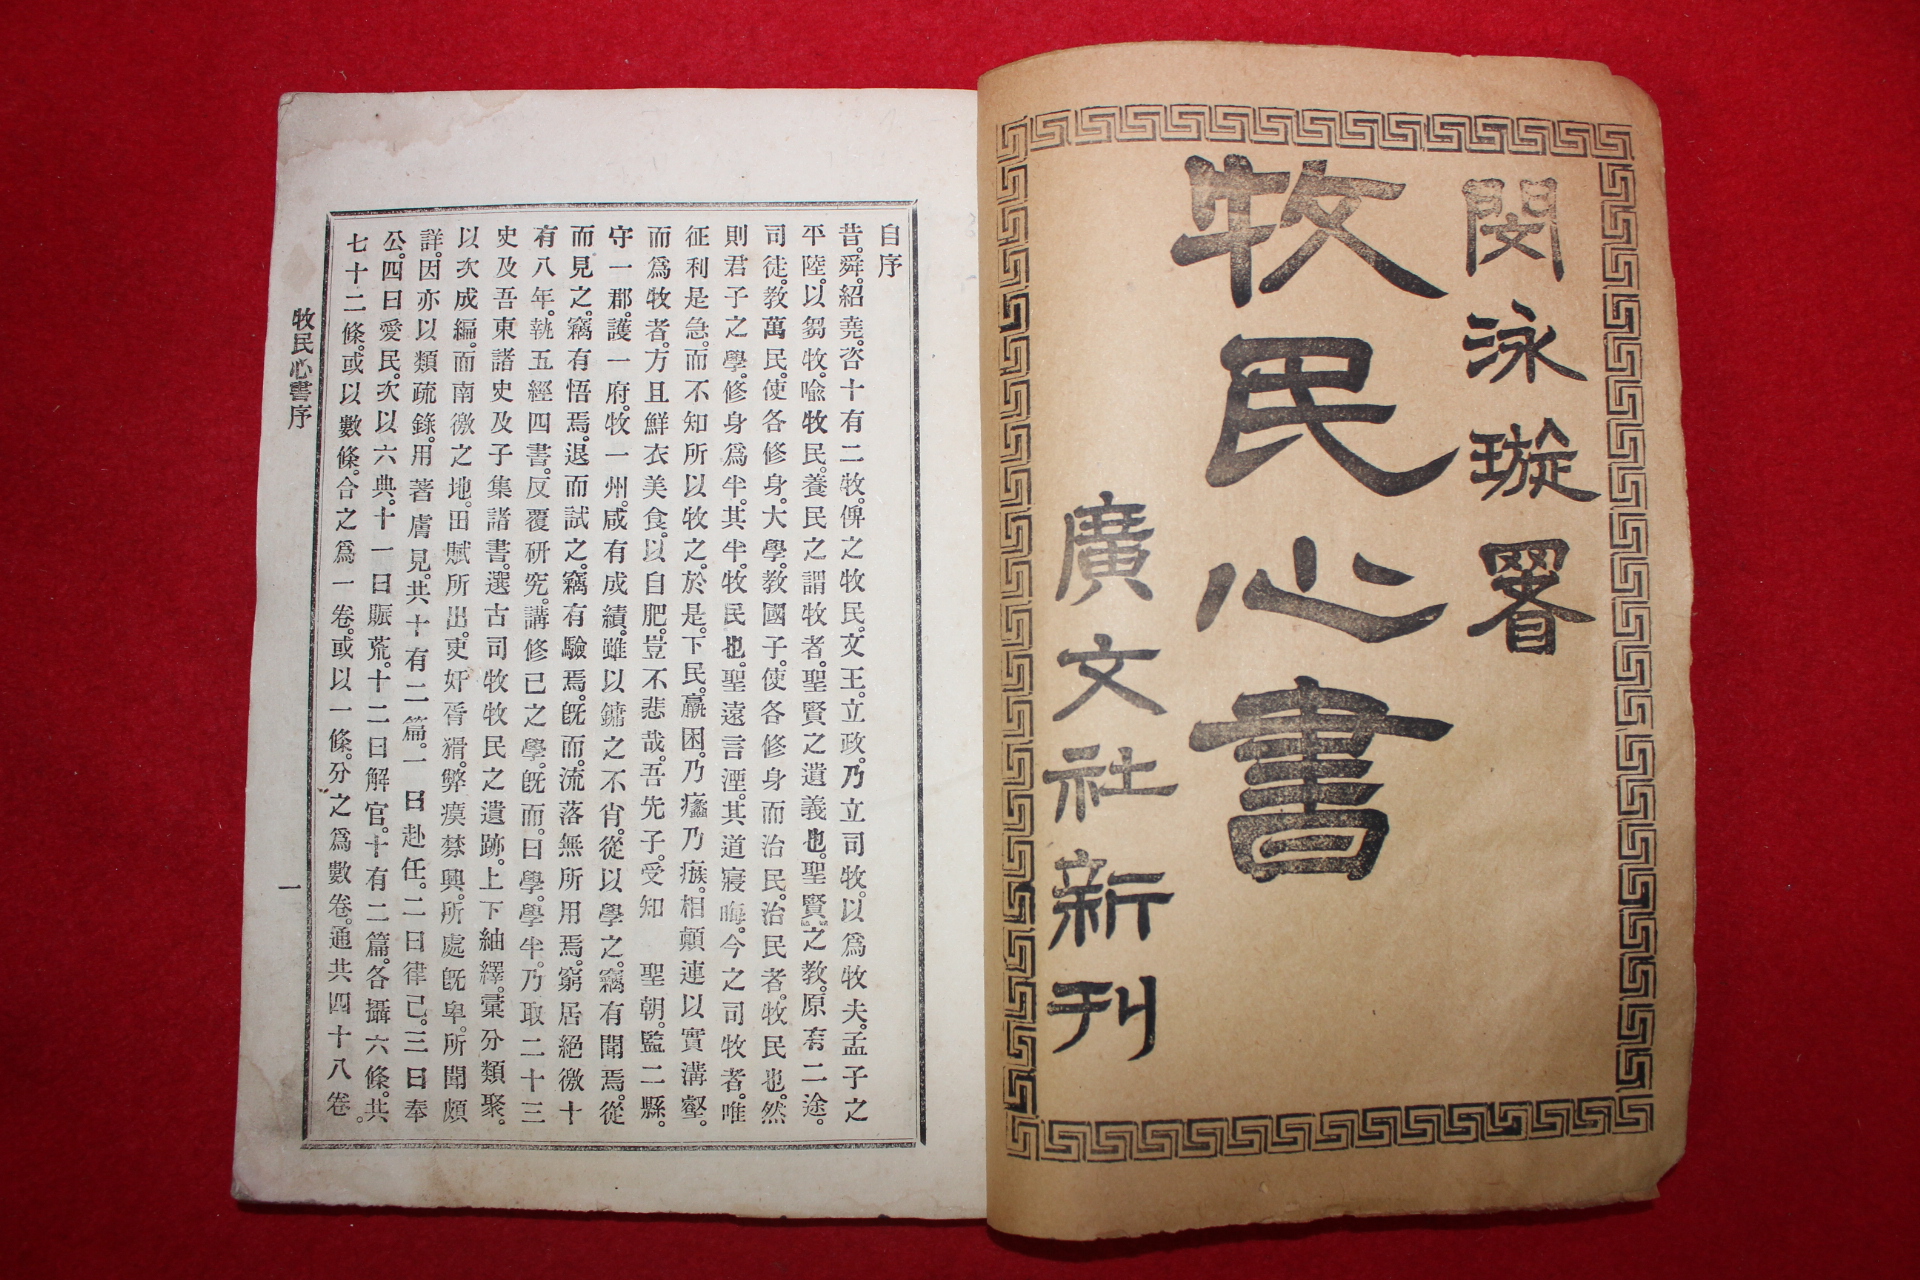 閔泳璇署
牧民心書
廣文社新刊
自序
昔。舜。紹堯。咨十有二牧。俾之牧民。文王。立政。乃立司牧。以爲牧夫。孟子之
平陸。以芻牧。喩牧民。養民之謂牧者。聖賢之遺義也。聖賢之教。原有二途。
司徒。教萬民。使各修身。大學。教國子。使各修身而治民。治民者。牧民也。然
則君子之學。修身爲半。其半。牧民也。聖遠言湮。其道寢晦。今之司牧者。唯
征利是急。而不知所以牧之。於是。下民。羸困。乃瘯。相顚連以實溝壑。
而爲牧者。方且鮮衣美食。以自肥。豈不悲哉。吾先子。受知 聖朝。監二縣。
守一郡。護一府。牧一州。咸有成績。雖以鏞之不肖。從以學之。竊有聞焉。從
而見之。竊有悟焉。退而試之。竊有驗焉。旣而。流落無所用焉。窮居絕徼十
有八年。執五經四書。反覆硏究。講修己之學。旣而。曰學。學半。乃取二十三
史及吾東諸史及子集諸書。選古司牧牧民之遺跡。上下紬繹。彙分類聚。
以次成編。而南徼之地。田賦所出。吏奸胥猾。弊瘼棼興。所處旣卑。所聞頗
詳。因亦以類疏錄。用著膚見。共十有二篇。一曰赴任。二曰律己。三曰奉
公。四曰愛民。次以六典。十一曰賑荒。十二曰解官。十有二篇。各攝六條。共
七十二條。或以數條。合之爲一卷。或以一條。分之爲數卷。通共四十八卷。
牧民心書序
一